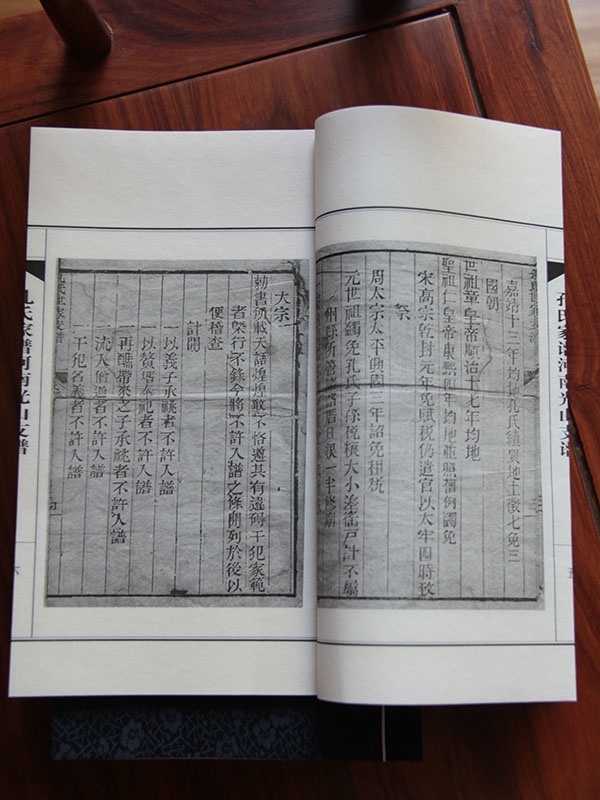 孔氏家谱河南光山支谱
五
嘉靖十三年均地孔氏續置地土徵七免三
國朝
世祖章皇帝順治十七年均地
聖祖仁皇帝康熙四年均地並照舊例蠲免
宋高宗乾封元年免賦稅仍遣官以太牢四時致
祭
周太宗太平興國三年詔免租稅
元世祖蠲免孔氏子孫稅糧大小差徭戶計不屬
州縣所管
大宗
勅書所載天語煌煌敢不恪遵其有違碍干犯家範
者槩行不錄今將不許入譜之條開列於後以
便稽查
計開
一以義子承祧者不許入譜
一以贅壻奉祀者不許入譜
一再醮帶來之子承祧者不許入譜
一流入僧道者不許入譜
一干犯名義者不許入譜
孔氏家譜河南光山支譜
六